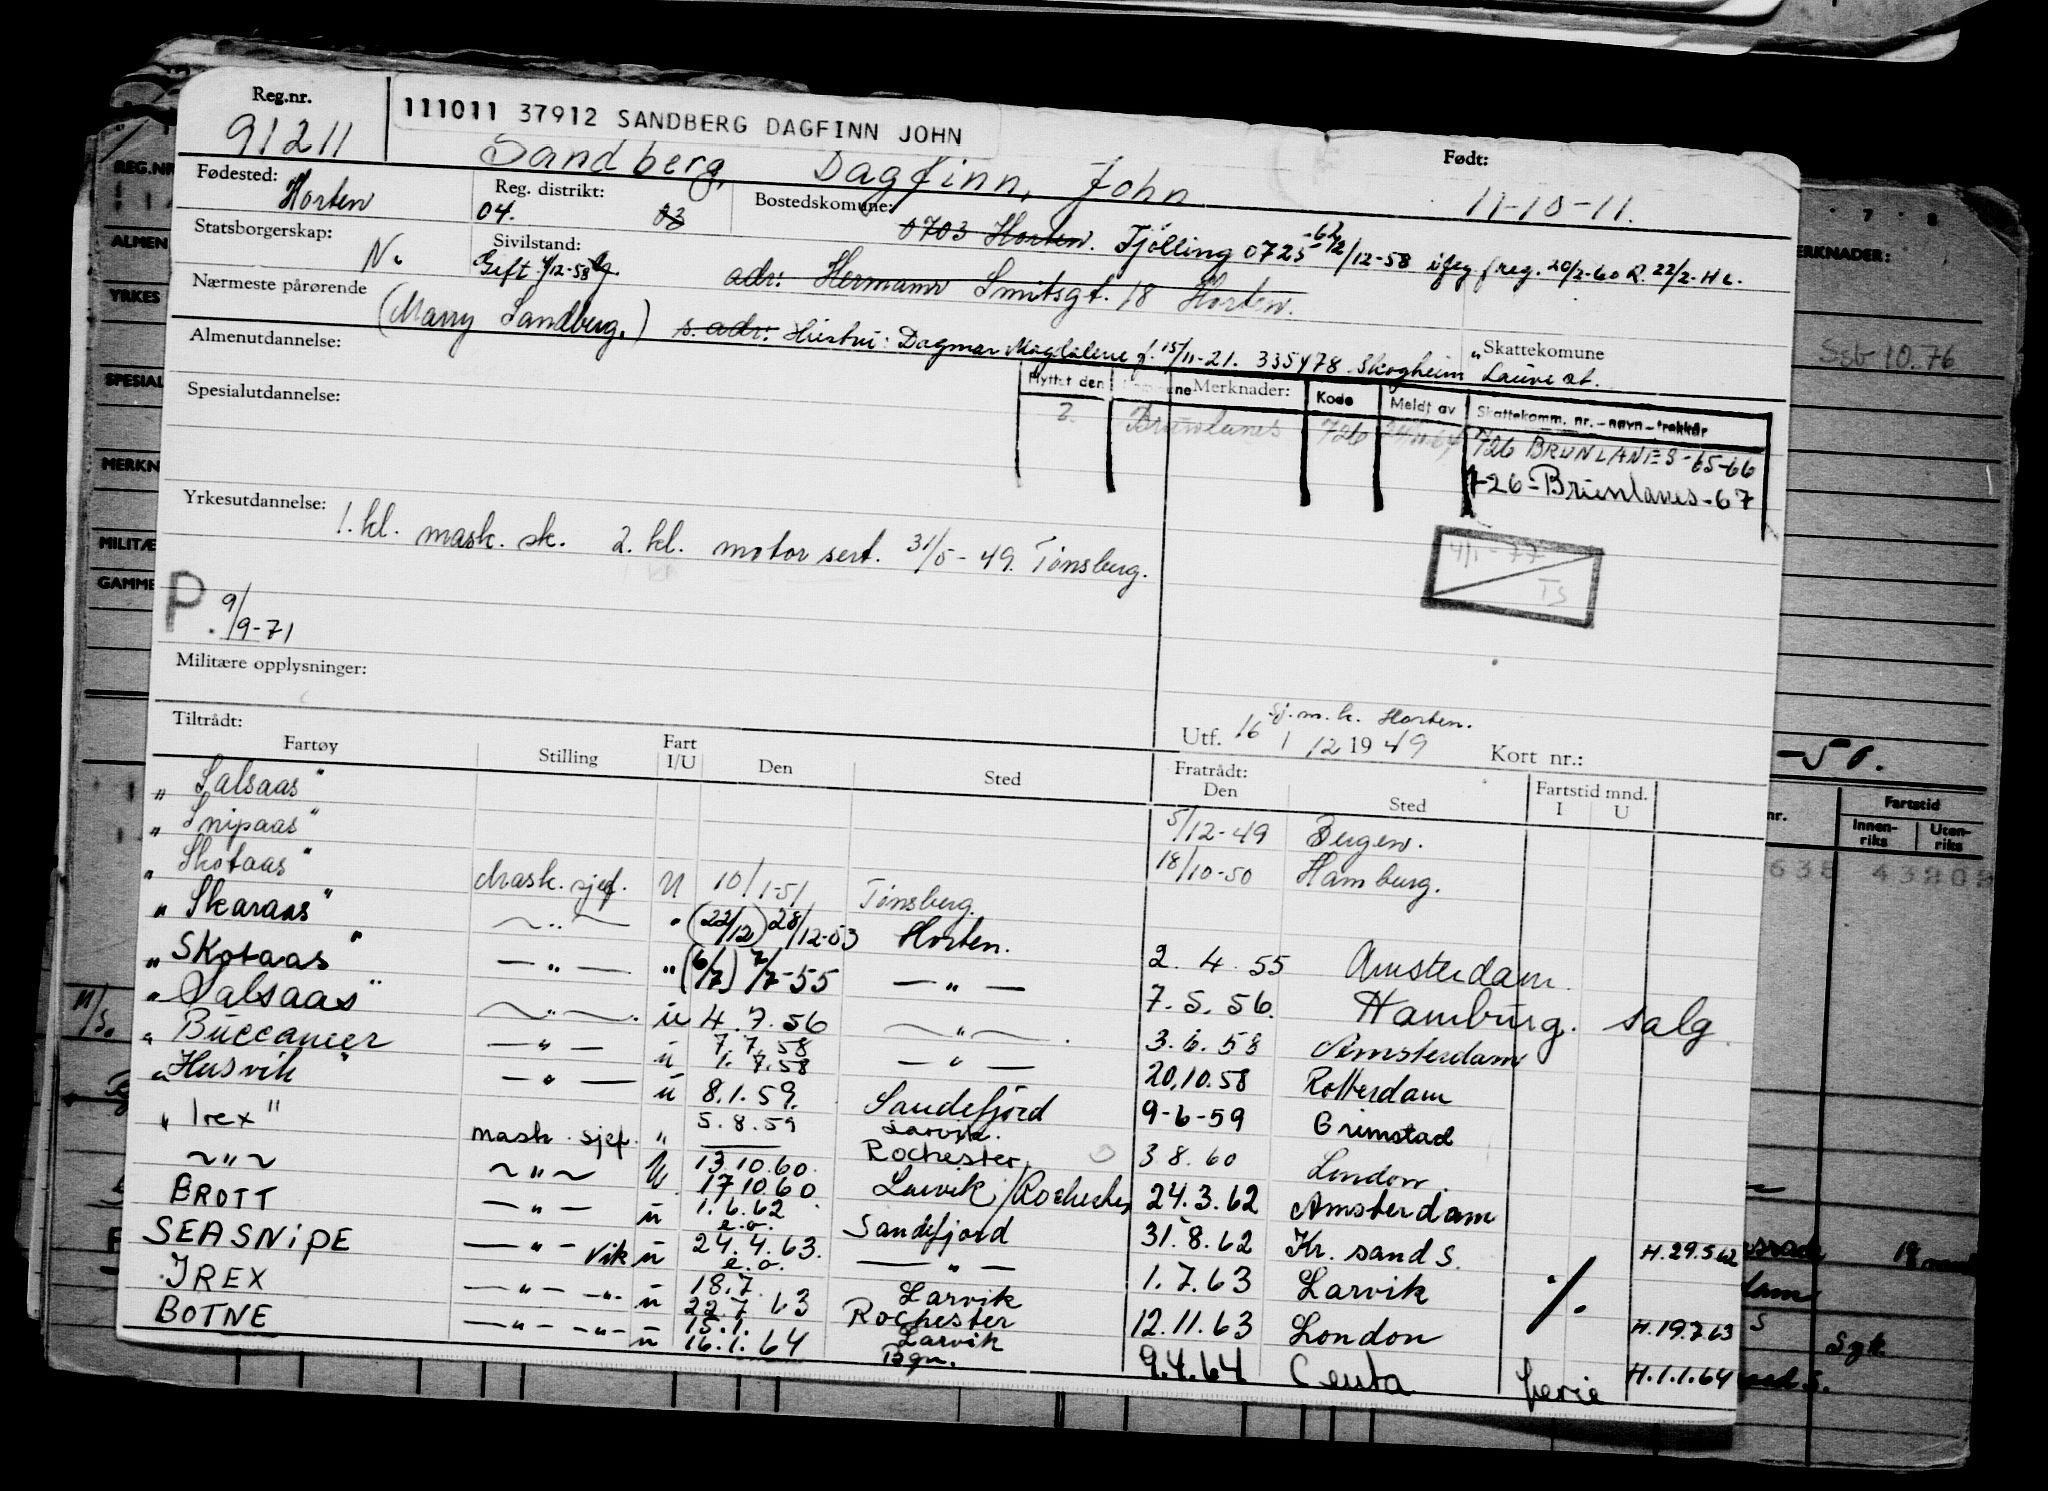 Reg.nr.
91211
111011 37912 SANDBERG DAGFINN JOHN
Sandberg, Dagfinn, John
Født:
11-10-11.
Fødested:
Horten
Reg. distrikt:
04. 03
Bostedskomune:
0703 Horten. Tjølling 0725
Statsborgerskap:
N.
Sivilstand:
Gift
adr: Hermann Smitsgt. 18 Horten.
Nærmeste pårørende
(Marry Sandberg.) s. adr: Hustru: Dagmar Magdalene f. 15/11-21. 335478 Skogheim
Skattekomune
Almenutdannelse:
Flyttet den Merknader: Kode Meldt av Skattekomm. nr. - navn - trekkår
Brunlanes 726
726 BRUNLANES-65-66
726-Brunlanes-67
Spesialutdannelse:
Yrkesutdannelse:
1. kl. mask. sk. 2. kl. motor sert. 31/5-49. Tønsberg.
4/1-77
TS
P. 9/9-71
Militære opplysninger:
Sj.m.k. Horten.
Utf. 16/12 1949 Kort nr.:
Tiltrådt:
Fratrådt:
Fartstid mnd.
Fartøy Stilling Fart I/U Den Sted Den Sted I U
"Salsaas" 5/12-49 Bergen.
"Snipaas" 18/10-50 Hamburg.
"Skotaas" Mask. sjef. U 10/1-51 Tønsberg.
"Skaraas" — " — " (22/12) 28/12-53 Horten. 2.4.55 Amsterdam.
"SKotaas" — " — " (6/7) 7/7-55 — " — 7.5.56. Hamburg. salg
"Salsaas" — " — . u 4.7.56 — " — . 3.6.58 Amsterdam
"Buccaneer — " — u 7.7.58 1.7.58 — " — 20.10.58 Rotterdam
"Husvik" — " — u 8.1.59. Sandefjord 9-6-59 Grimstad
"Irex" mask. sjef. " 5.8.59 Larvik. 3.8.60 London.
~ " ~ ~ " ~ U 13.10.60. 17.10.60 Rochester Larvik/Rochester 24.3.62 Amsterdam
BROTT — " — u 1.6.62 e.o. Sandefjord 31.8.62 Kr. sand S. H.29.5.62
SEASNIPE — " — vik u 24.4.63. e.o. — " — 1.7.63 Larvik ./.
IREX — " — - " - u 18.7. 22.7.63 Larvik Rochester 12.11.63 London H.19.7.63
BOTNE — " — - " - u 15.1. 16.1.64 Larvik Bgn. 9.4.64 Ceuta ferie H.1.1.64
REG.NR
ALMEN
YRKES
SPESIAL
MERKN
MILITÆ
GAMME
7 8
MERKNADER:
Ssb 10.76
-50.
Fartstid
Innen-riks Uten-riks
Sgk.